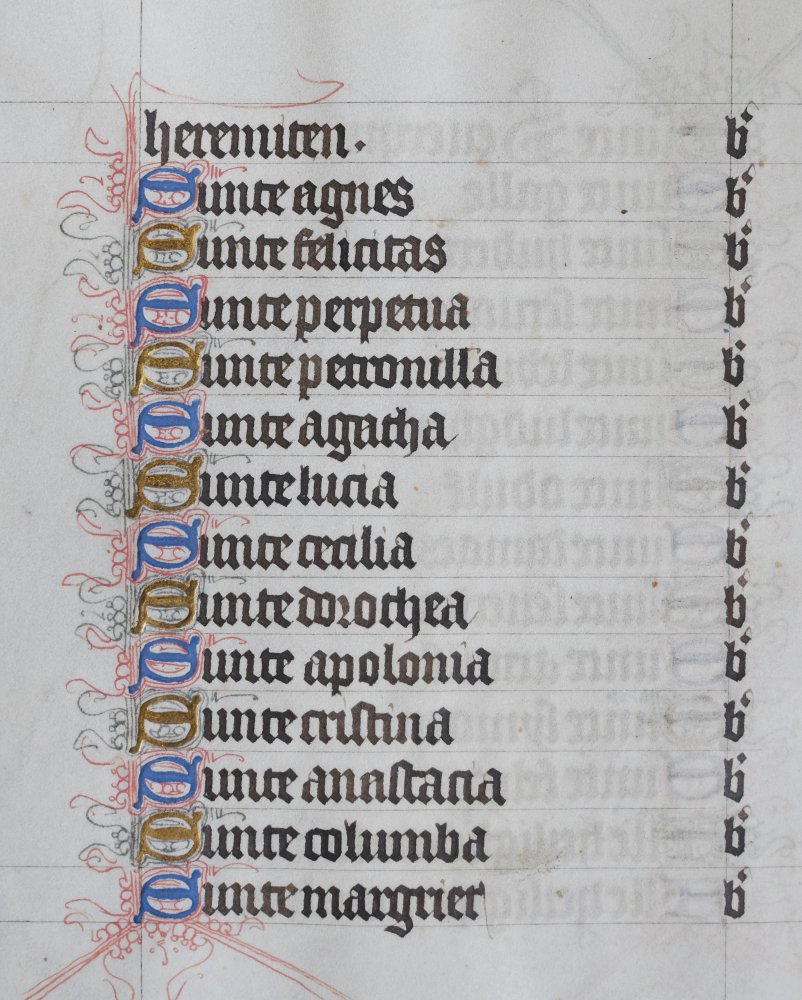 heremiten. b'
Sunte agnes b'
Sunte felicitas b'
Sunte perpetua b'
Sunte petronilla b'
Sunte agatha b'
Sunte lucia b'
Sunte cecilia b'
Sunte dorothea b'
Sunte apolonia b'
Sunte cristina b'
Sunte anastacia b'
Sunte columba b'
Sunte margriet b'